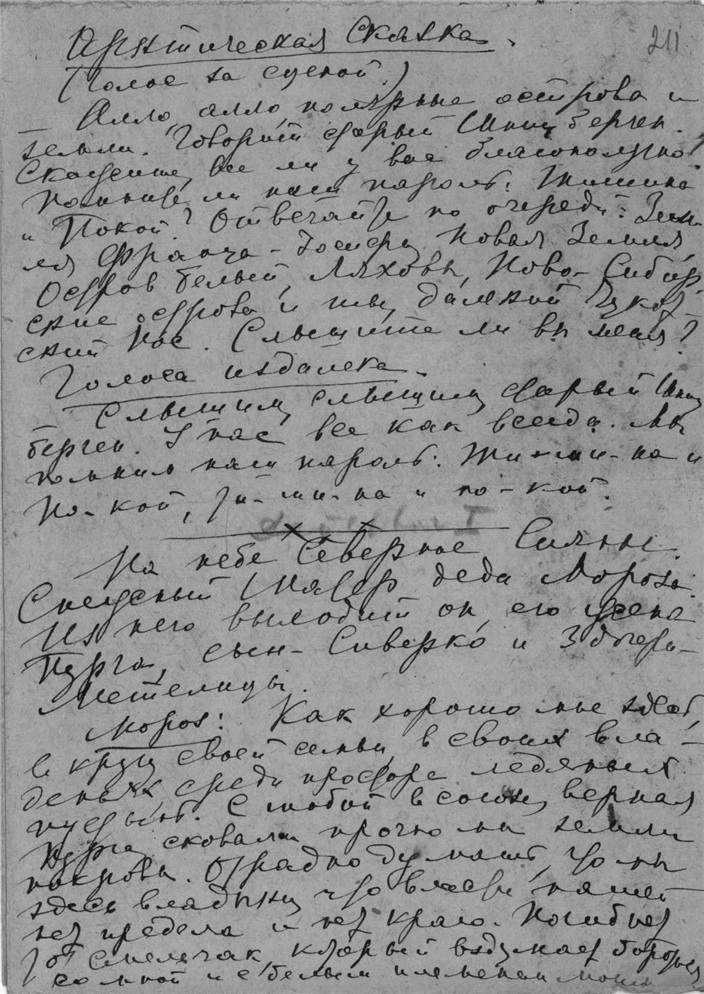 Арктическая Сказка.
211
(Голос за сценой.)
— Алло алло полярные острова и
земли. Говорит старый Шпицберген.
Скажите, все ли у вас благополучно?
Помните ли наш пароль: Тишина
и Покой? Отвечайте по очереди: Зем-
ля Франца-Иосифа, Новая Земля,
Остров белый, Ляховы, Ново-Сибир
ские острова и ты, далекий Чукот
ский Нос. Слышите ли вы меня?
Голоса издалека.
Слышим, слышим, старый Шпиц
берген. У нас все как всегда. Мы
помним наш пароль: Ти-ши-на и
По-кой, ти-ши-на и по-кой.
На небе Северное Сияние.
Снежный Шатер деда Мороза.
Из него выходит он, его жена
Пурга, сын-Сиверко и 3 дочери-
Метелицы.
Мороз: Как хорошо мне здесь,
в кругу своей семьи, в своих вла-
деньях, среди простора ледяных
пустынь. С тобой в союзе, верная
Пурга, сковали прочно мы земли
покровы. Отрадно думать, что мы
здесь владыки, что власти нашей
нет предела и нет краю. Погибнет
тот смельчак, который вздумает бороться
со мной и с белым племенем моим